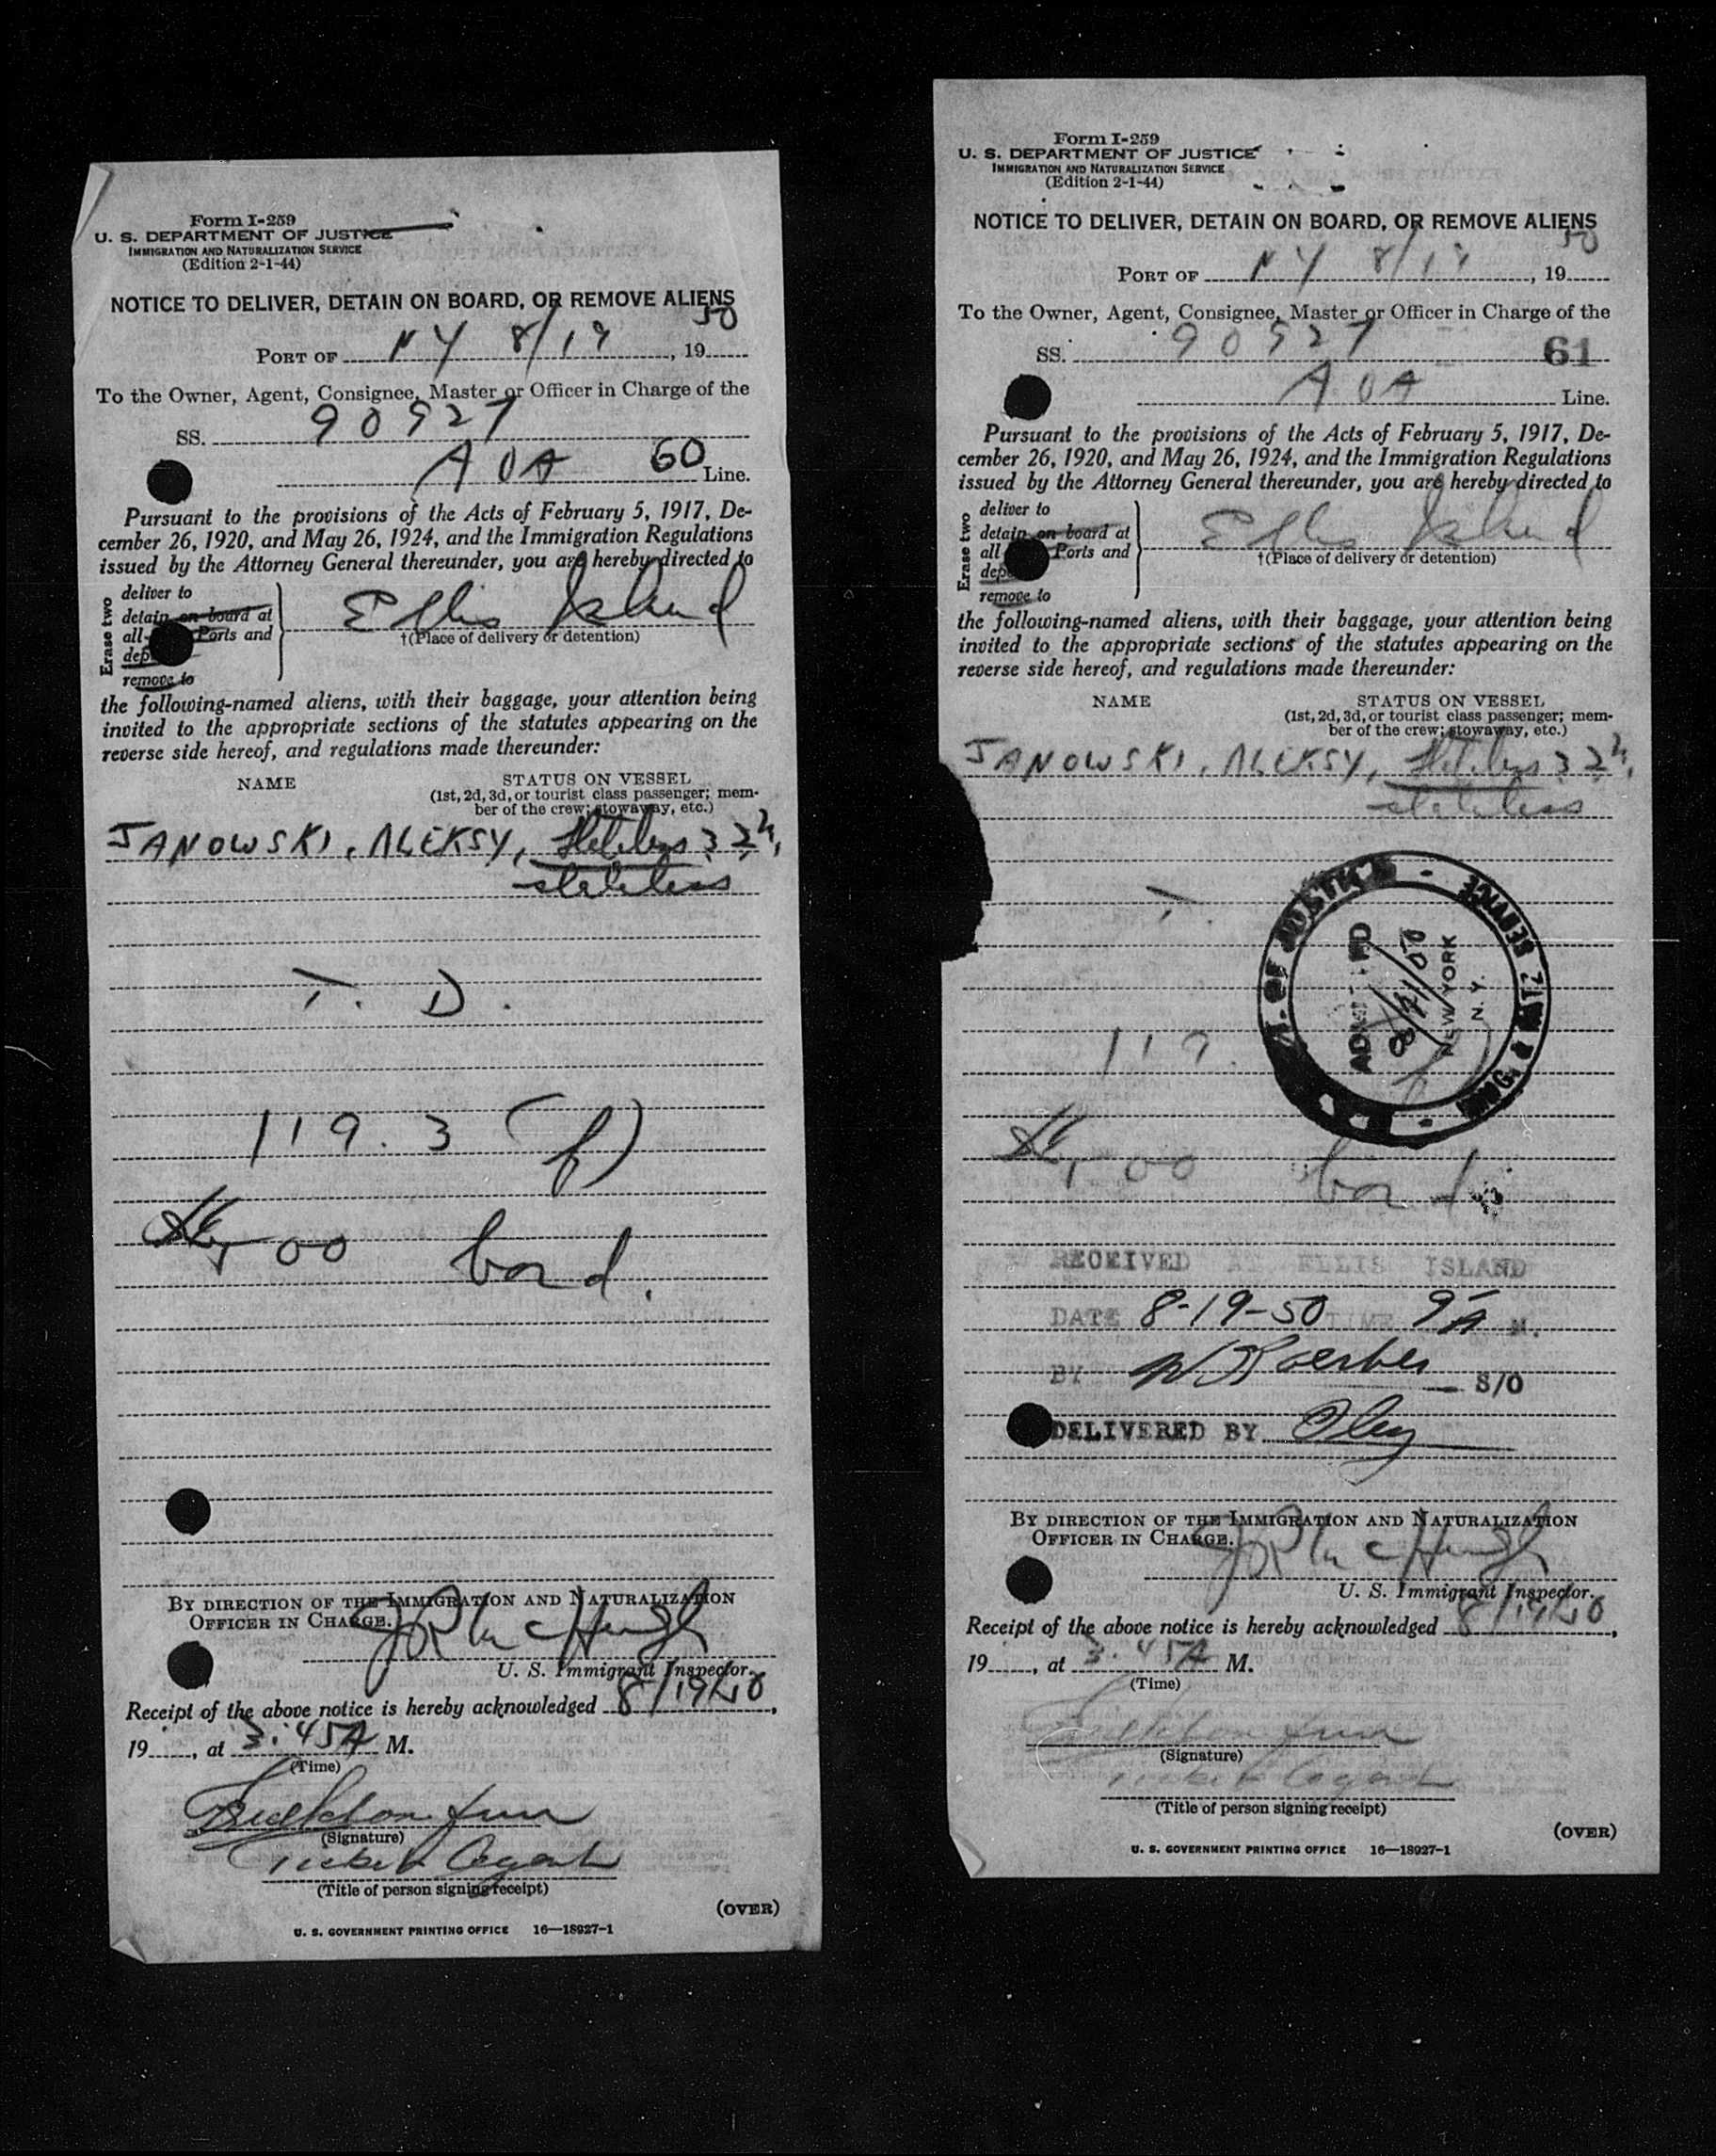 Form I-259
U. S. DEPARTMENT OF JUSTICE
IMMIGRATION AND NATURALIZATION SERVICE
(Edition 2-1-44)
NOTICE TO DELIVER, DETAIN ON BOARD, OR REMOVE ALIENS
PORT OF NY 8/19, 1950
To the Owner, Agent, Consignee, Master or Officer in Charge of the
SS. 90527
AOA 60 Line.
Pursuant to the provisions of the Acts of February 5, 1917, De-
cember 26, 1920, and May 26, 1924, and the Immigration Regulations
issued by the Attorney General thereunder, you are hereby directed to
Erase two
deliver to
detain on board at
all Ports and
dep
remove to
Ellis Island
†(Place of delivery or detention)
the following-named aliens, with their baggage, your attention being
invited to the appropriate sections of the statutes appearing on the
reverse side hereof, and regulations made thereunder:
NAME STATUS ON VESSEL
(1st, 2d, 3d, or tourist class passenger; mem-
ber of the crew; stowaway, etc.)
JANOWSKI, ALEKSY, 32
stateless
T. D.
119.3 (b)
500 bond.
BY DIRECTION OF THE IMMIGRATION AND NATURALIZATION
OFFICER IN CHARGE.
McHugh
U. S. Immigrant Inspector.
Receipt of the above notice is hereby acknowledged 8/19/50,
19, at 3:45A M.
(Time)
(Signature)
Ticket Agent
(Title of person signing receipt)
(OVER)
U. S. GOVERNMENT PRINTING OFFICE 16—18927-1
Form I-259
U. S. DEPARTMENT OF JUSTICE
IMMIGRATION AND NATURALIZATION SERVICE
(Edition 2-1-44)
NOTICE TO DELIVER, DETAIN ON BOARD, OR REMOVE ALIENS
PORT OF NY 8/19, 1950
To the Owner, Agent, Consignee, Master or Officer in Charge of the
SS. 90527 61
AOA Line.
Pursuant to the provisions of the Acts of February 5, 1917, De-
cember 26, 1920, and May 26, 1924, and the Immigration Regulations
issued by the Attorney General thereunder, you are hereby directed to
Erase two
deliver to
detain on board at
all Ports and
dep
remove to
Ellis Island
†(Place of delivery or detention)
the following-named aliens, with their baggage, your attention being
invited to the appropriate sections of the statutes appearing on the
reverse side hereof, and regulations made thereunder:
NAME STATUS ON VESSEL
(1st, 2d, 3d, or tourist class passenger; mem-
ber of the crew; stowaway, etc.)
JANOWSKI, ALEKSY, 32
stateless
T.
OF JUSTICE
IMMIG. & NATZ SERVICE
ADMITTED
8/21/50
NEW YORK
N. Y.
119.
500 bond
RECEIVED AT ELLIS ISLAND
DATE 8-19-50 TIME 9 A M.
BY S/O
DELIVERED BY
BY DIRECTION OF THE IMMIGRATION AND NATURALIZATION
OFFICER IN CHARGE.
McHugh
U. S. Immigrant Inspector.
Receipt of the above notice is hereby acknowledged 8/19/50,
19, at 3:45A M.
(Time)
(Signature)
Ticket Agent
(Title of person signing receipt)
(OVER)
U. S. GOVERNMENT PRINTING OFFICE 16—18927-1